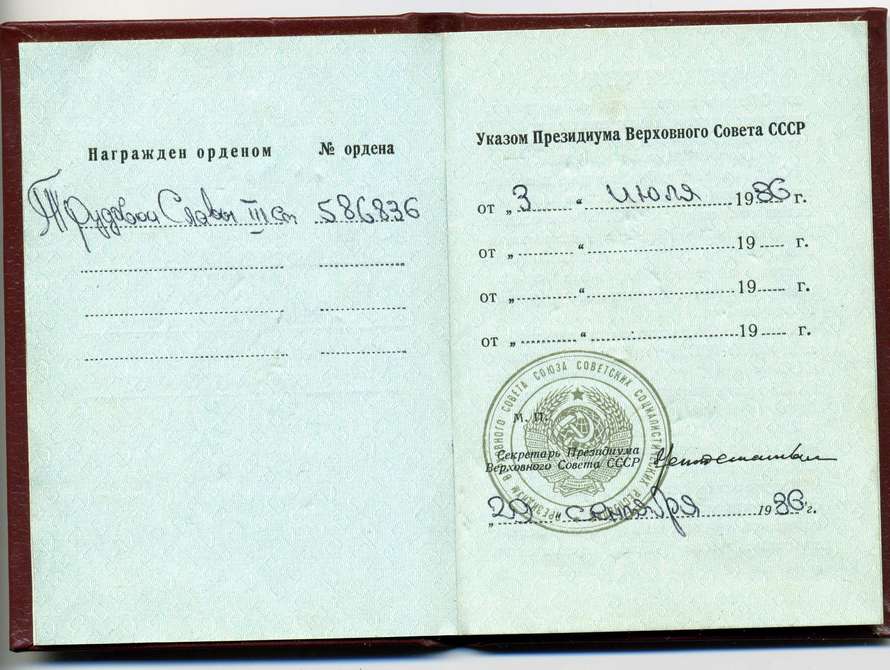 Награжден орденом № ордена
Трудовой Славы III ст 586836
Указом Президиума Верховного Совета СССР
от „3“ июля 1986 г.
от „ “ 19 г.
от „ “ 19 г.
от „ “ 19 г.
ПРЕЗИДИУМ ВЕРХОВНОГО СОВЕТА СОЮЗА СОВЕТСКИХ СОЦИАЛИСТИЧЕСКИХ РЕСПУБЛИК
М. П.
Секретарь Президиума
Верховного Совета СССР
„29 сентября 1986 г.